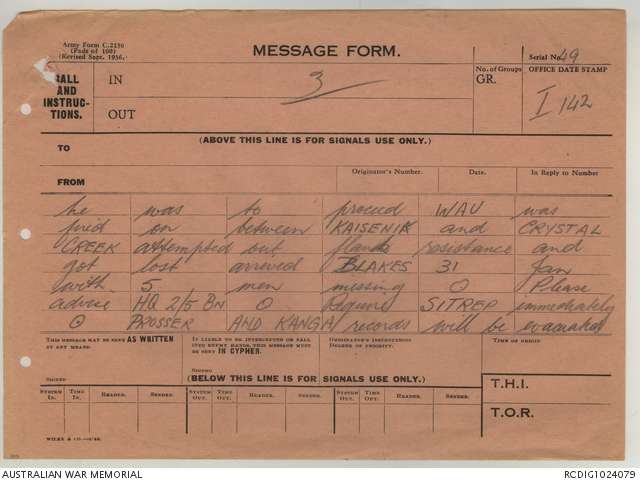 Army Form C.2136
(Pads of 100)
(Revised Sept. 1936.)
MESSAGE FORM.
Serial No. 49
CALL
AND
INSTRUC-
TIONS.
IN
3
No. of Groups
GR.
OFFICE DATE STAMP
I 142
OUT
(ABOVE THIS LINE IS FOR SIGNALS USE ONLY.)
TO
FROM
Originator's Number.
Date.
In Reply to Number
he was to proceed WAU was
fired on between KAISENIK and CRYSTAL
CREEK attempted out flank resistance and
got lost arrived BLAKES 31 Jan
with 5 men missing O Please
advise HQ 2/5 BN O Require SITREP immediately
O PROSSER AND KANGA records will be evacuated
THIS MESSAGE MAY BE SENT AS WRITTEN
BY ANY MEANS.
SIGNED
IF LIABLE TO BE INTERCEPTED OR FALL
INTO ENEMY HANDS, THIS MESSAGE MUST
BE SENT IN CIPHER.
SIGNED
ORIGINATOR'S INSTRUCTIONS
DEGREE OF PRIORITY.
TIME OF ORIGIN.
(BELOW THIS LINE IS FOR SIGNALS USE ONLY.)
SYSTEM IN. TIME IN. READER. SENDER. SYSTEM OUT. TIME OUT. READER. SENDER. SYSTEM OUT. TIME OUT. READER. SENDER.
T.H.I.
T.O.R.
AUSTRALIAN WAR MEMORIAL
RCDIG1024079